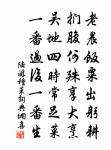 老農飯粟出躬耕
捫腹何殊享大烹
吳地四時常足菜
一番過後一番生
陸游種菜詞典網書